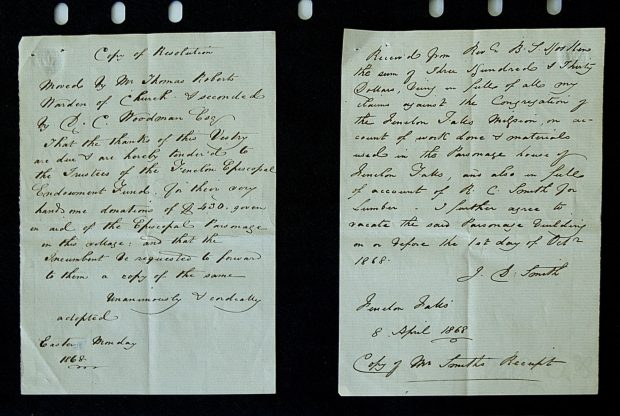 Copy of Resolution
Moved by Mr Thomas Roberts
Warden of Church & seconded
by C. Woodman Esq
That the thanks of this Vestry
are due & are hereby tender'd to
the Trustees of the Fenelon Episcopal
Endowment Fund. For their very
handsome donations of $ 430. given
in aid of the Episcopal Parsonage
in this village: and that the
Incumbent be requested to forward
to them a copy of the same
Unanimously & cordially
adopted
Easter Monday
1868.
Received from Rev B. S
the sum of Three Hundred & Thirty
Dollars, being in full of all my
claims against the Congregation of
the Fenelon Falls Mission, on ac-
count of work done & materials
used in the Parsonage house of
Fenelon Falls, and also in full
of account of R. C. Smith for
Lumber I further agree to
vacate the said Parsonage building
on or before the 1st day of Octr
1868.
J. D. Smith
Fenelon Falls
8 April 1868
Copy of Mr Smith's Receipt